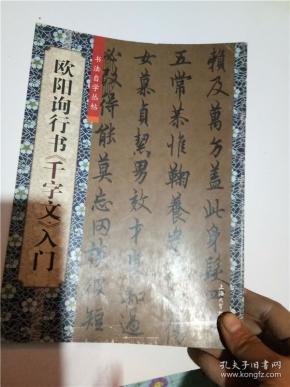 书法自学丛帖
欧阳询行书《千字文》入门
賴及萬方盖此身髮四
五常恭惟鞠養
女慕貞絜男效才良知過
必改得能莫忘罔談彼短
上海
孔夫子旧书网